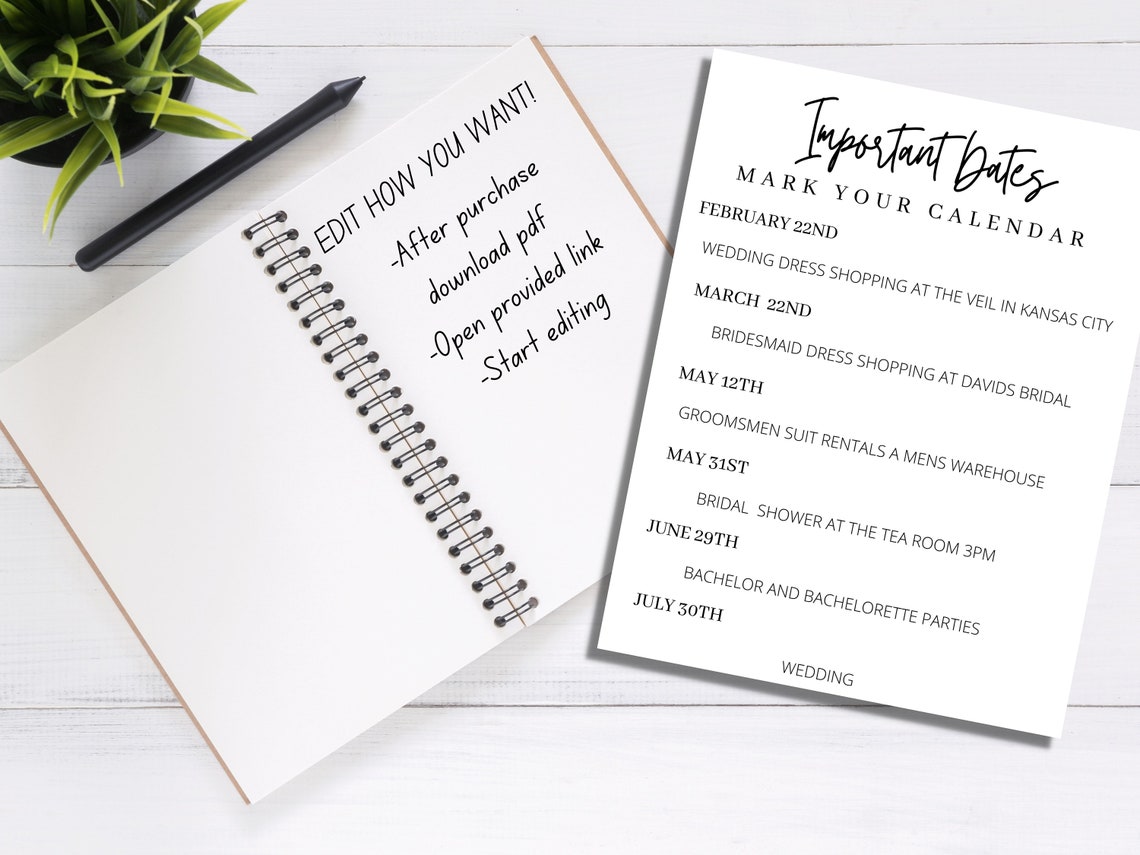 EDIT HOW YOU WANT!
-After purchase
download pdf
-Open provided link
-Start editing
Important Dates
MARK YOUR CALENDAR
FEBRUARY 22ND
WEDDING DRESS SHOPPING AT THE VEIL IN KANSAS CITY
MARCH 22ND
BRIDESMAID DRESS SHOPPING AT DAVIDS BRIDAL
MAY 12TH
GROOMSMEN SUIT RENTALS A MENS WAREHOUSE
MAY 31ST
BRIDAL SHOWER AT THE TEA ROOM 3PM
JUNE 29TH
BACHELOR AND BACHELORETTE PARTIES
JULY 30TH
WEDDING